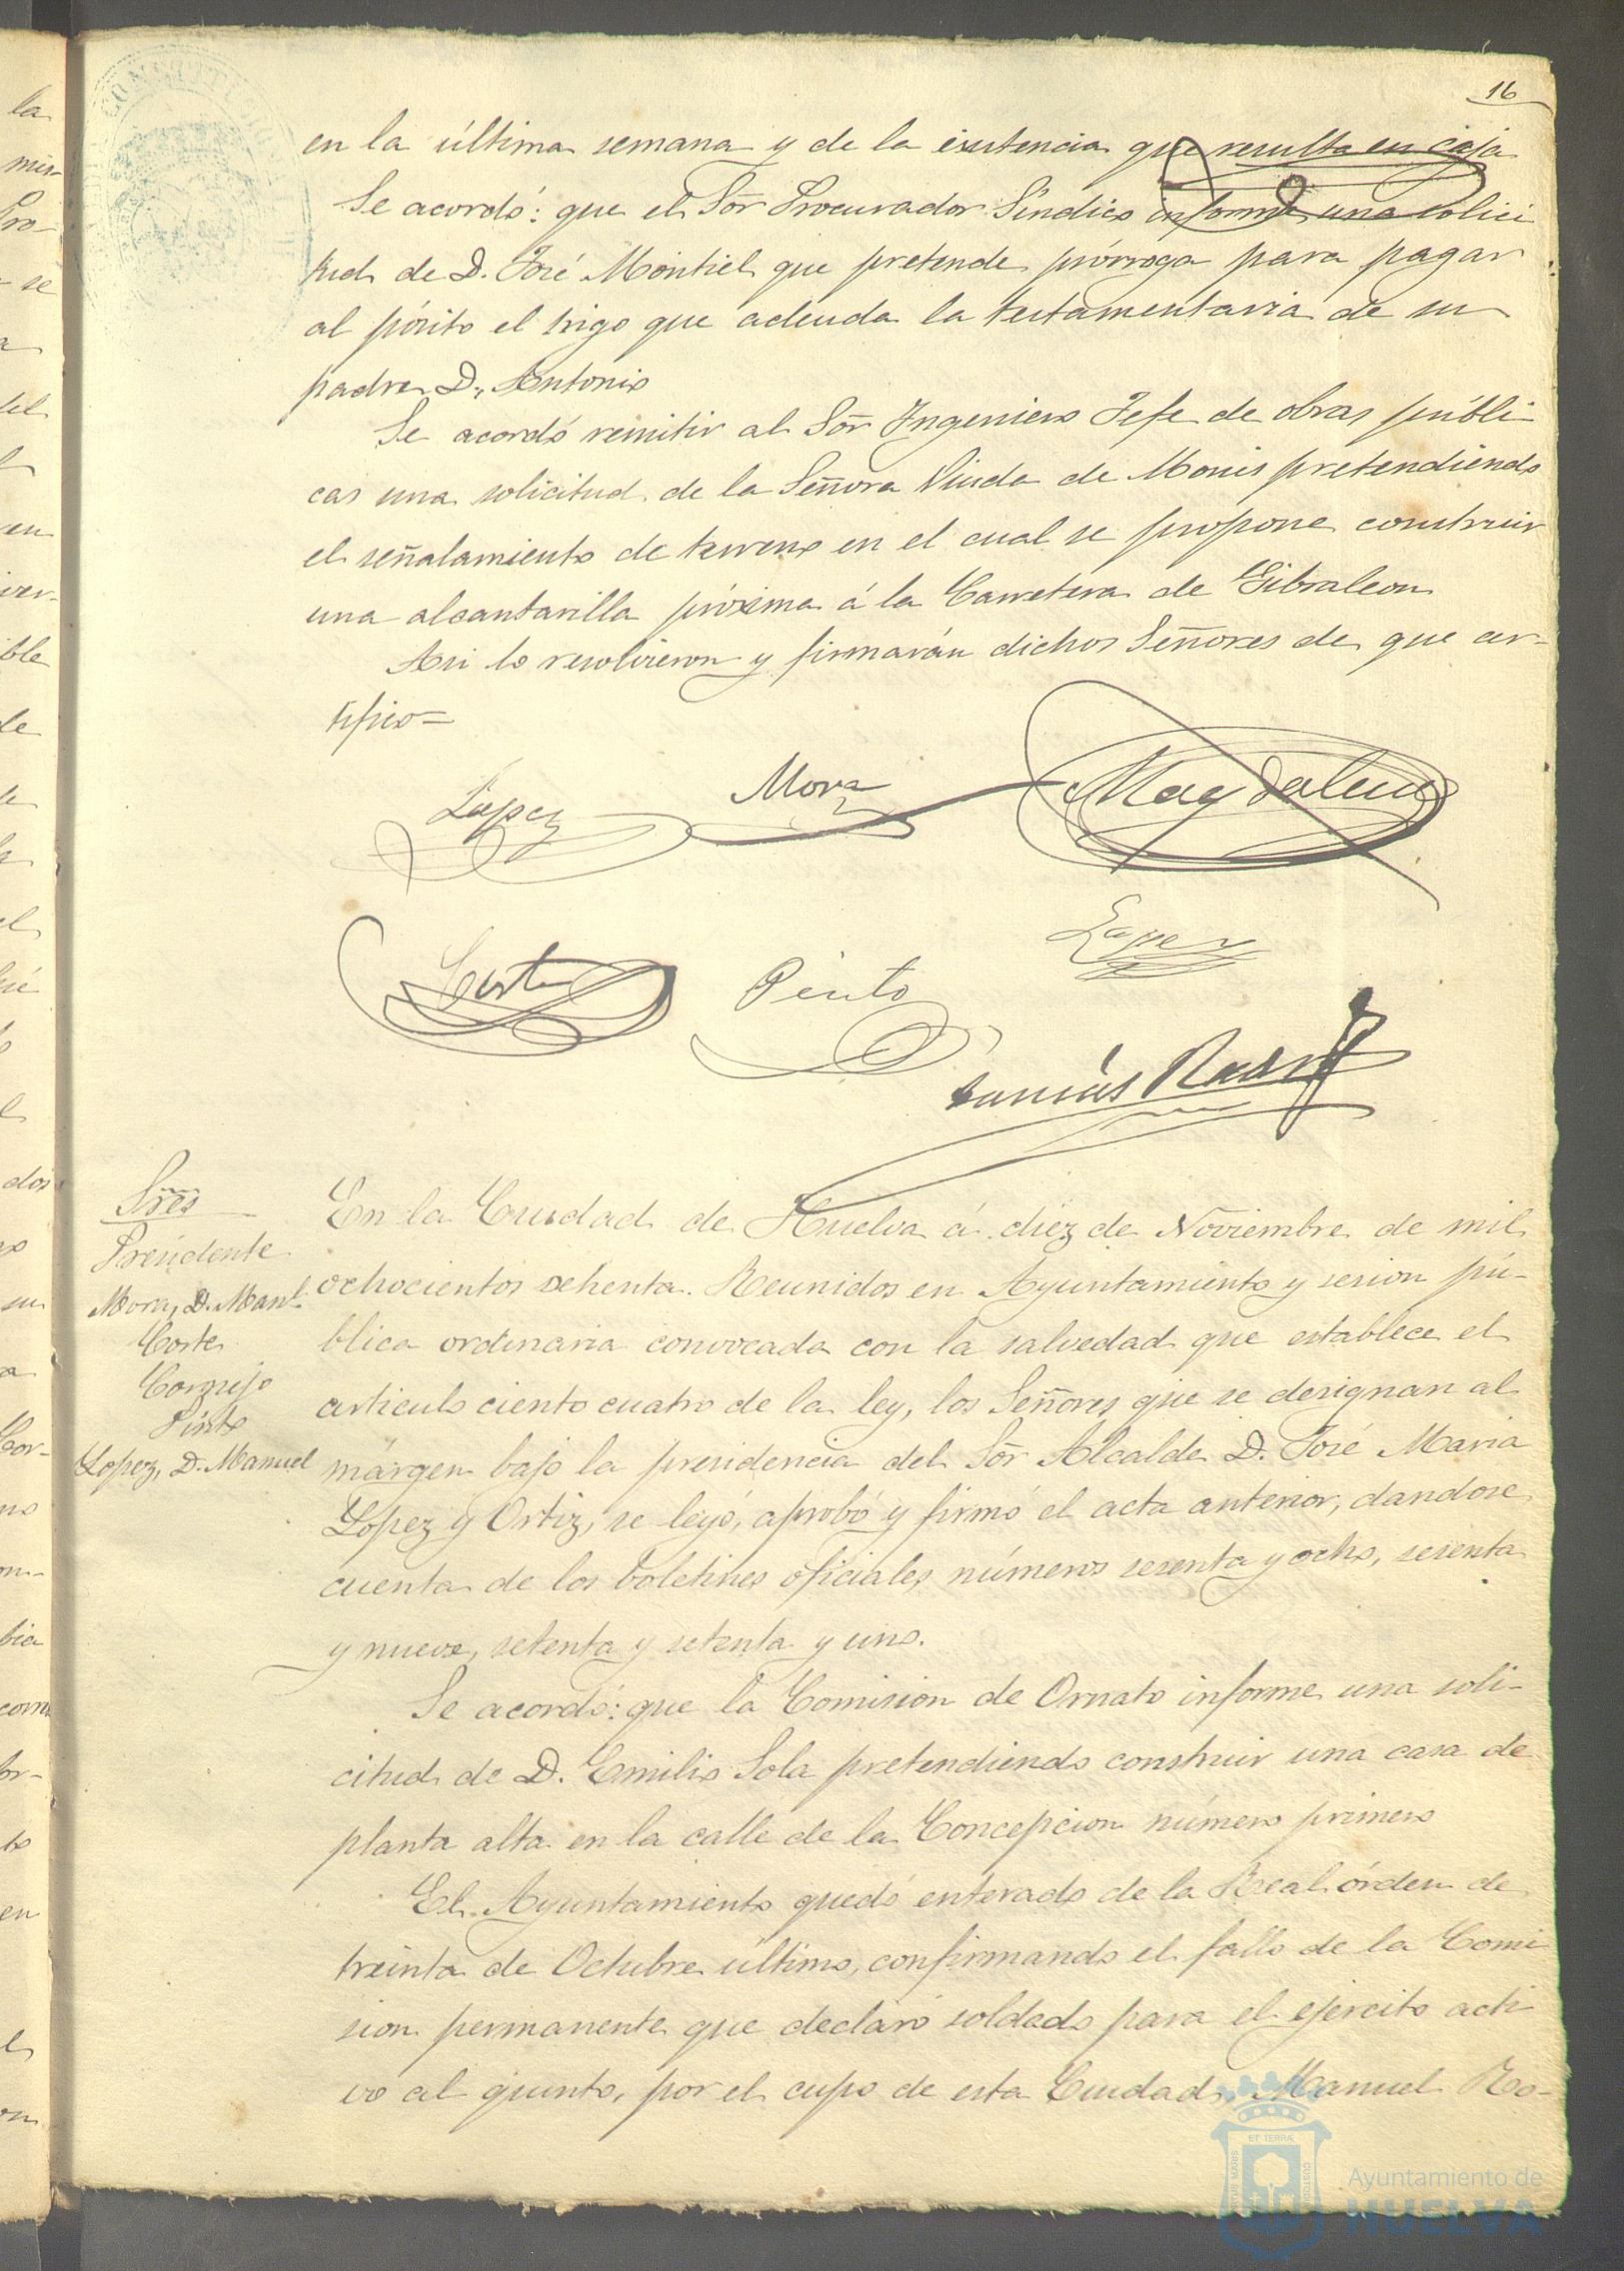 16
en la última semana y de la existencia que resulta en caja
Se acordó: que el Sor Procurador Síndico informe una solici
tud de D. José Montiel que pretende prórroga para pagar
al pósito el trigo que adeuda la testamentaria de su
padre D. Antonio
Se acordó remitir al Sor Ingeniero Jefe de obras públi-
cas una solicitud de la Señora Viuda de Monis pretendiendo
el señalamiento de terreno en el cual se propone construir
una alcantarilla próxima á la Carretera de Gibraleon
Asi lo resolvieron y firmarán dichos Señores de que cer-
tifico=
Lopez
Mora
Magdalena
Corte
Pinto
Lopez
Sres
Presidente
Mora, D. Manl.
Corte
Cornejo
Pinto
Lopez, D. Manuel
En la Ciudad de Huelva á diez de Noviembre de mil
ochocientos ochenta. Reunidos en Ayuntamiento y sesion pú-
blica ordinaria convocada con la salvedad que establece el
articulo ciento cuatro de la ley, los Señores que se designan al
márgen bajo la presidencia del Sor Alcalde D. José Maria
Lopez y Ortiz, se leyó, aprobó y firmó el acta anterior, dandose
cuenta de los boletines oficiales números sesenta y ocho, sesenta
y nueve, setenta y setenta y uno.
Se acordó: que la Comision de Ornato informe una soli-
citud de D. Emilio Sola pretendiendo construir una casa de
planta alta en la calle de la Concepcion número primero
El Ayuntamiento quedó enterado de la Real órden de
treinta de Octubre último, confirmando el fallo de la Comi
sion permanente que declaró soldado para el ejército acti
vo al quinto, por el cupo de esta Ciudad, Manuel Ro-
Ayuntamiento de
HUELVA